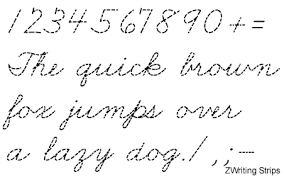 1234567890+=
The quick brown
fox jumps over
a lazy dog./,;-
ZWriting Strips